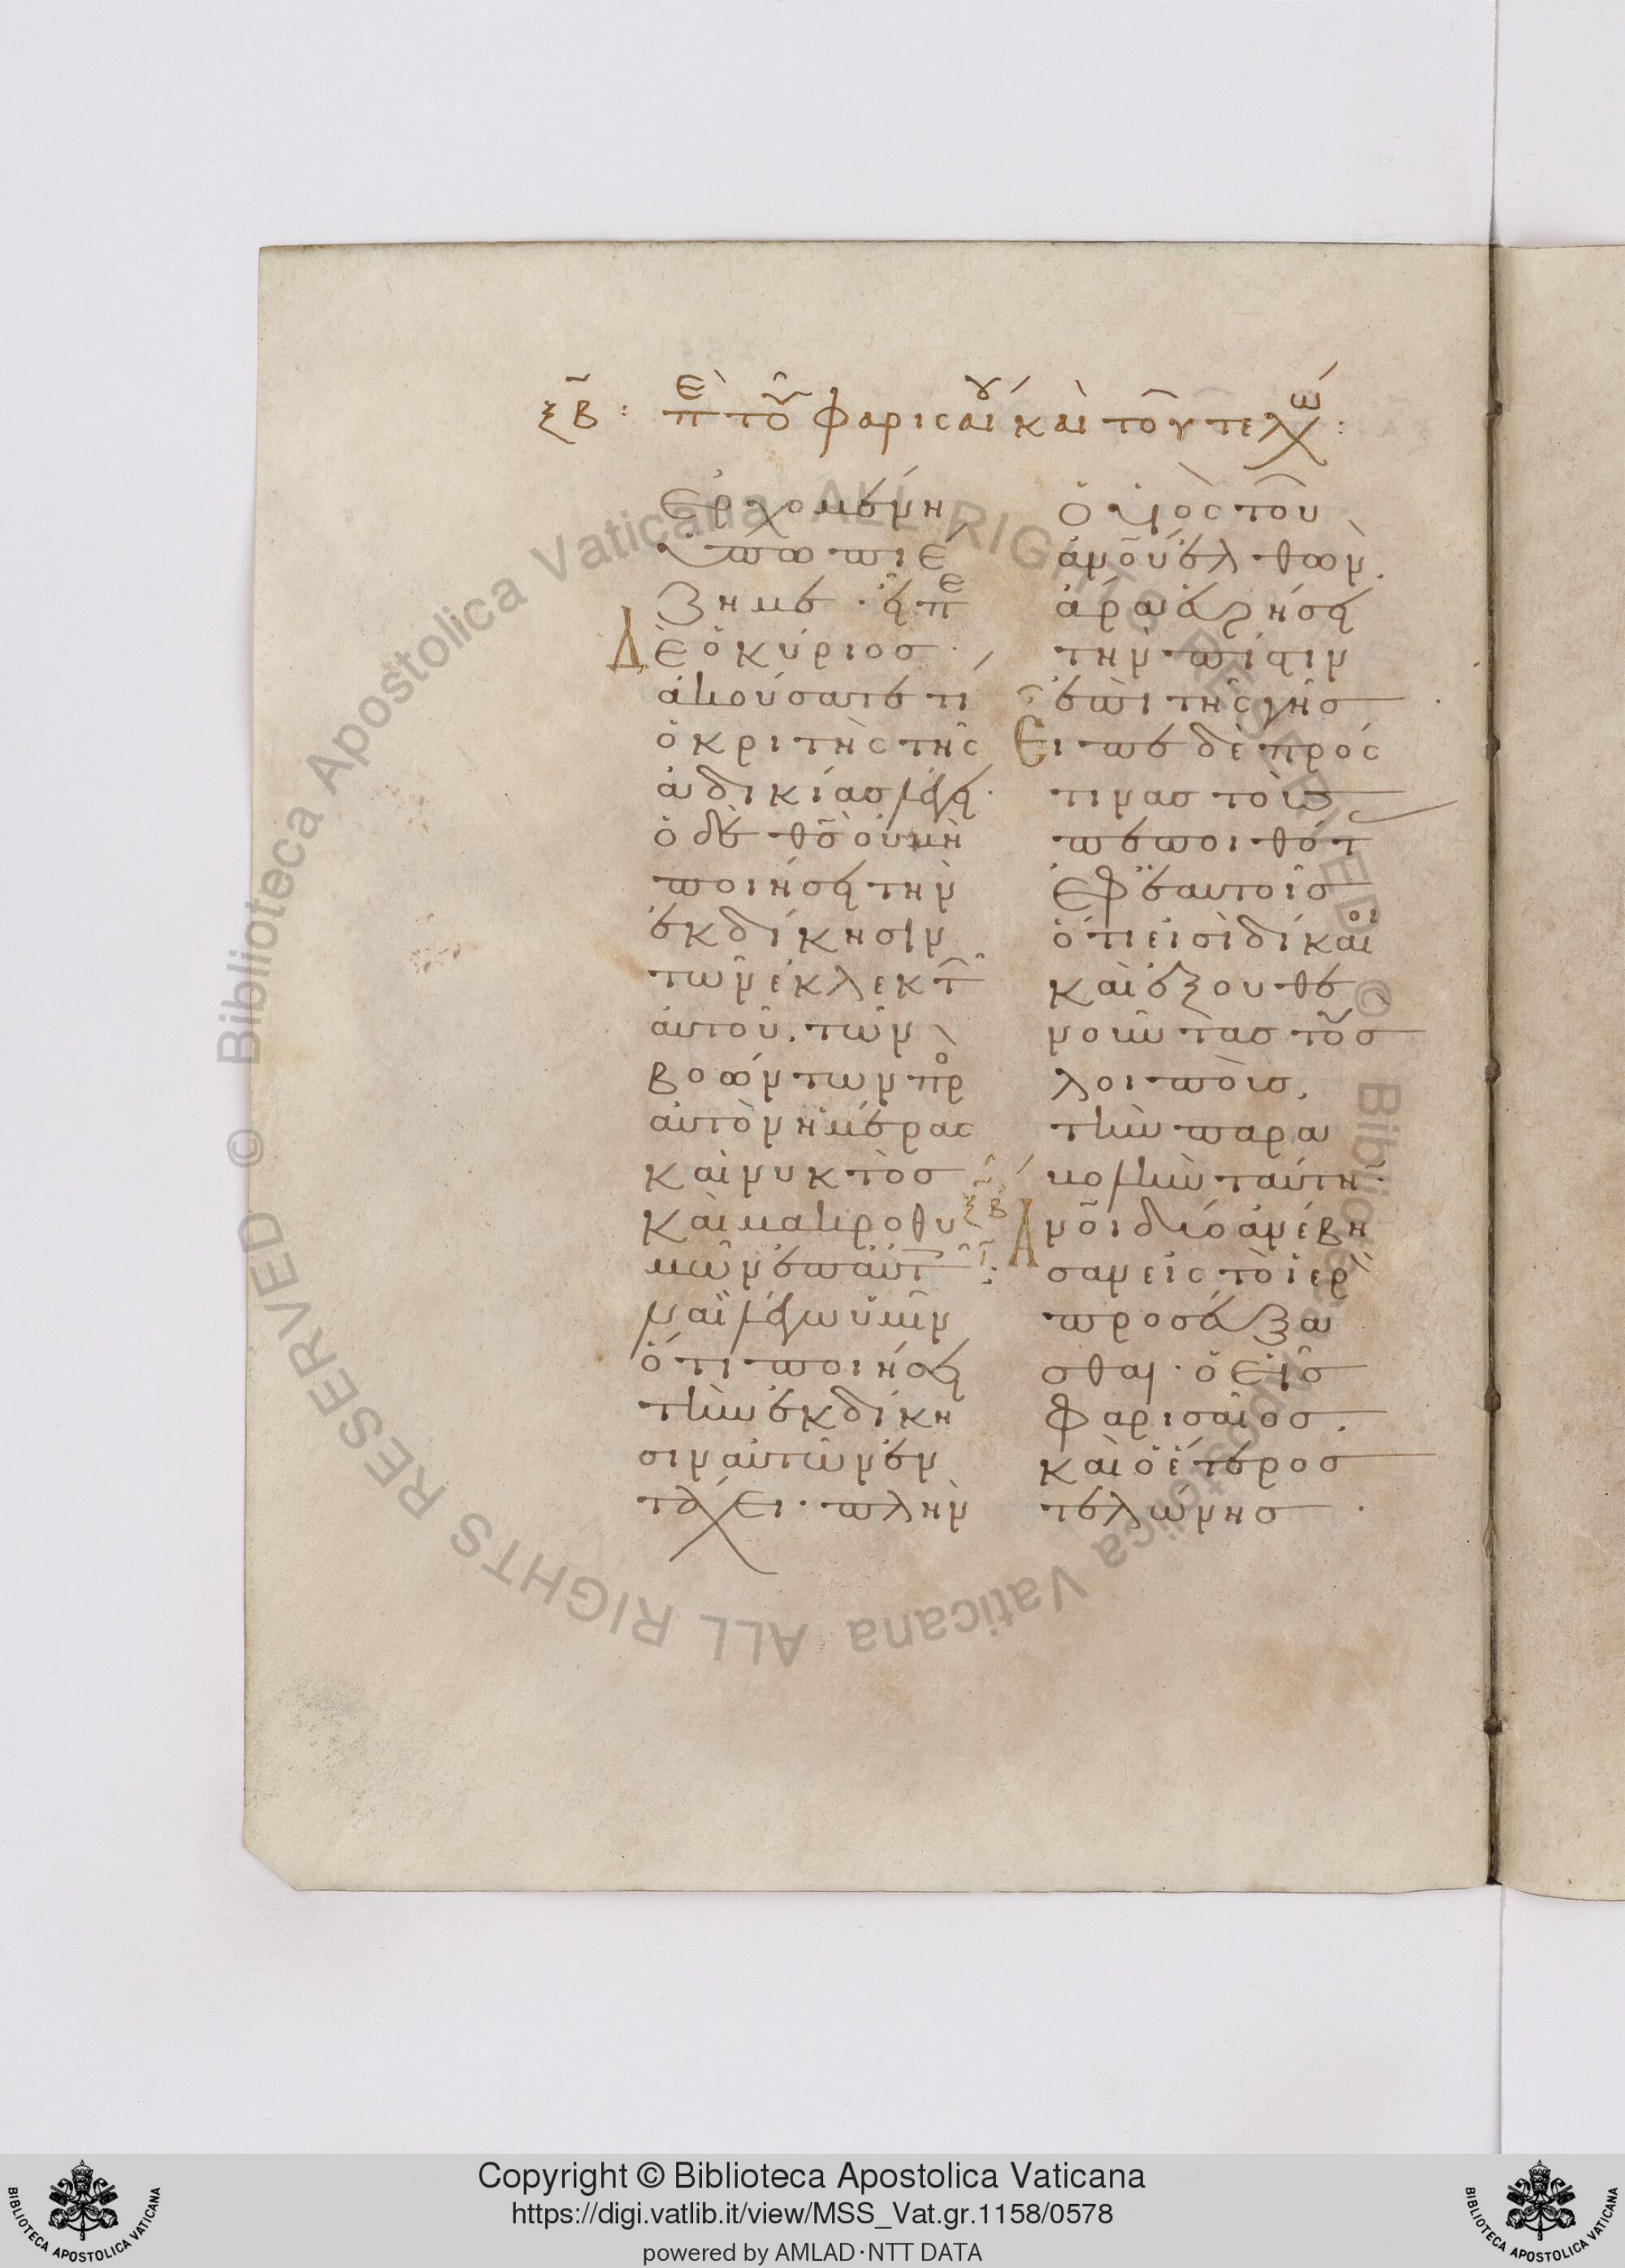 ξβ: πε τοῦ φαρισαίου καὶ τοῦ τελω:
Ἐρχομένη
ὑπωπιέ
ζη με· εἶπε
Δὲ ὁ κύριος·
ἀκούσατε τί
ὁ κριτὴς τῆς
ἀδικίας λέγει·
ὁ δὲ θσ οὐ μὴ
ποιήσει τὴν
ἐκδίκησιν
τῶν ἐκλεκτ
αὐτοῦ. τῶν
βοώντων πρ
αὐτὸν ἡμέρας
καὶ νυκτὸς
καὶ μακροθυ
μῶν ἐπ αὐτ:
ναὶ λέγω ὑμῖν
ὅτι ποιήσει
τὴν ἐκδίκη
σιν αὐτῶν ἐν
τάχει· πλὴν
ὁ υἱὸς τοῦ
ἀνοῦ ἐλθὼν
ἆρα εὑρήσει
τὴν πίστιν
ἐπὶ τῆς γῆς
Εἶπε δὲ πρός
τινας τοὺς
πεποιθότ
ἐφ ἑαυτοῖς
ὅτι εἰσὶ δίκαιοι
καὶ ἐξουθε
νοῦντας τοὺς
λοιποὺς.
τὴν παρα
βολὴν ταύτην·
ξβ
Ανοι δύο ἀνέβη
σαν εἰς τὸ ἱερ
προσεύξα
σθαι· ὁ εἷς
Φαρισαῖος.
καὶ ὁ ἕτερος
τελώνης
Copyright © Biblioteca Apostolica Vaticana
https://digi.vatlib.it/view/MSS_Vat.gr.1158/0578
powered by AMLAD·NTT DATA
BIBLIOTECA APOSTOLICA VATICANA
BIBLIOTECA APOSTOLICA VATICANA
© Biblioteca Apostolica Vaticana ALL RIGHTS RESERVED © Biblioteca Apostolica Vaticana ALL RIGHTS RESERVED